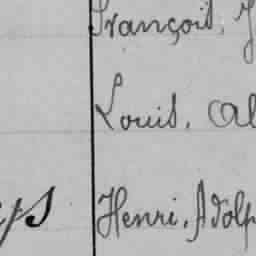 François,
Louis, Al
Henri, Adolp